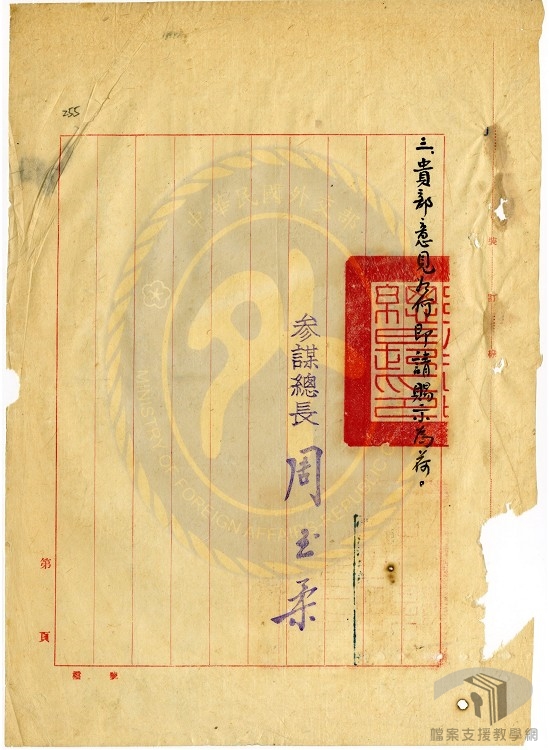 255
裝訂線
三、貴部意見如何即請賜示為荷。
参謀總長 周至柔
第 頁
中華民國外交部
OF FOREIGN AFFAIRS REPUBLIC O
檔案支援教學網